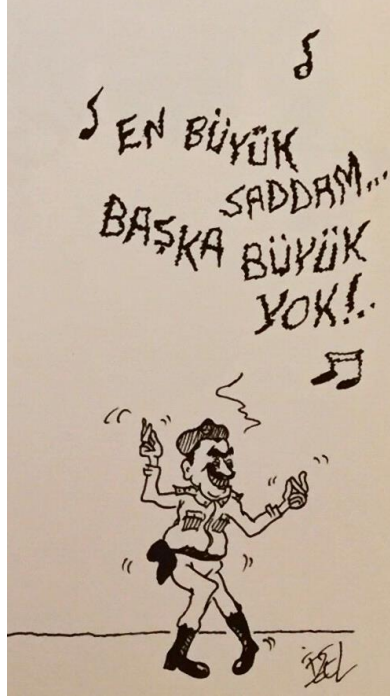 EN BÜYÜK
SADDAM...
BAŞKA BÜYÜK
YOK!..